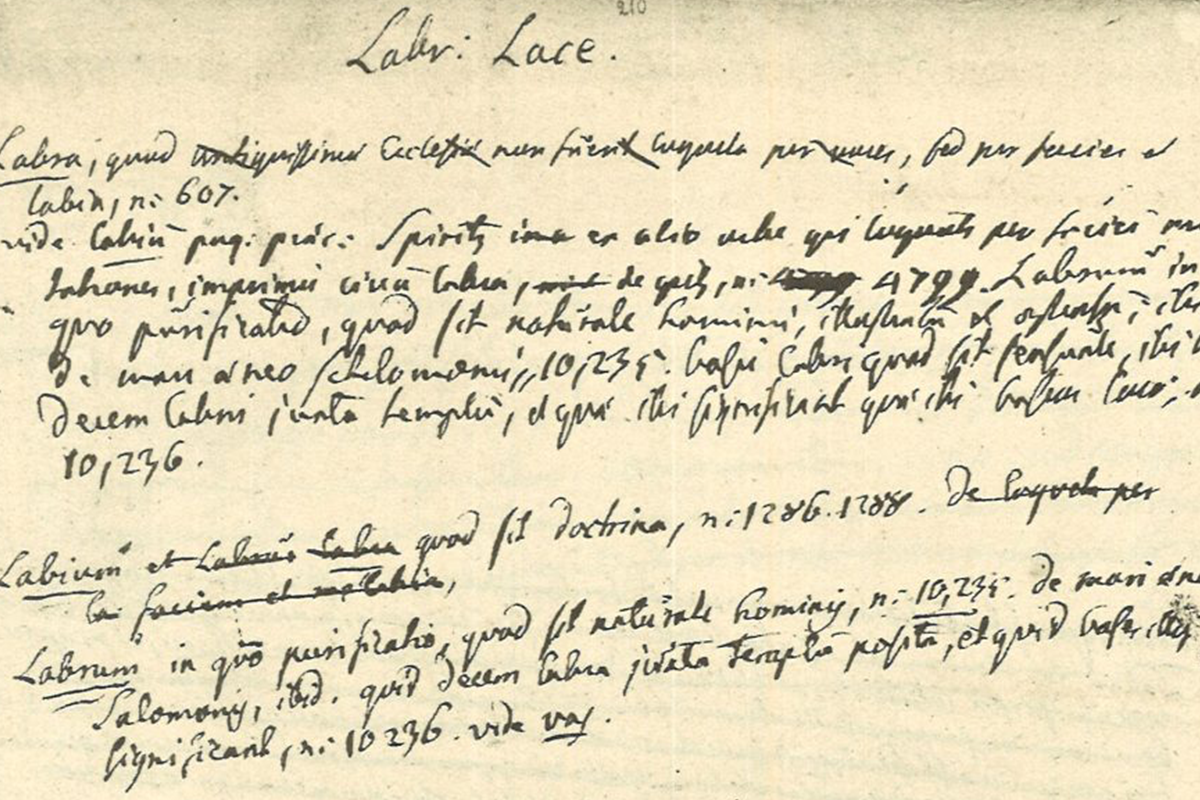 210
Labr: Lace.
Labra, quod antiquissima Ecclesia non fuerit loquela per voces, sed per facies et
labia, n: 607.
vide Labiu pag: præc: Spirits ex alio orbe qui loquuts per faciei
imprimis circu labra, de quib, n: 4799. Labrum in
quo purificatio, quod sit naturale hominis, illustratur et ostenditr, ibi
de mari æneo Schelomonis, 10,235. basis labri quod sit sensuale, ibi
Decem labris juxta templu, et qui ibi significant qui ibi
10,236.
Labium et Labrum labra quod sit doctrina, n: 1286. 1288. De loquela per
faciem et labia,
Labrum in quo purificatio, quod sit naturale hominis, n: 10,235. de mari æneo
Salomonis, ibid. quid decem labra juxta templu posita, et quid bases illis
significant, n: 10236. vide vas.